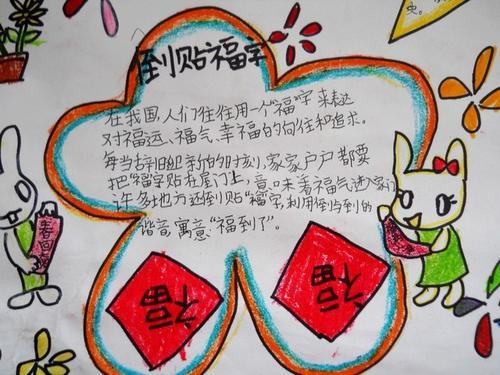 倒贴福字
在我国,人们往往用一个"福"字来表达
对福运、福气、幸福的向往和追求。
每当辞旧迎新的时刻,家家户户都要
把"福"字贴在屋门上,意味着福气进家门
许多地方还倒贴"福"字,利用倒与到的
谐音,寓意"福到了"。
福
福
春回